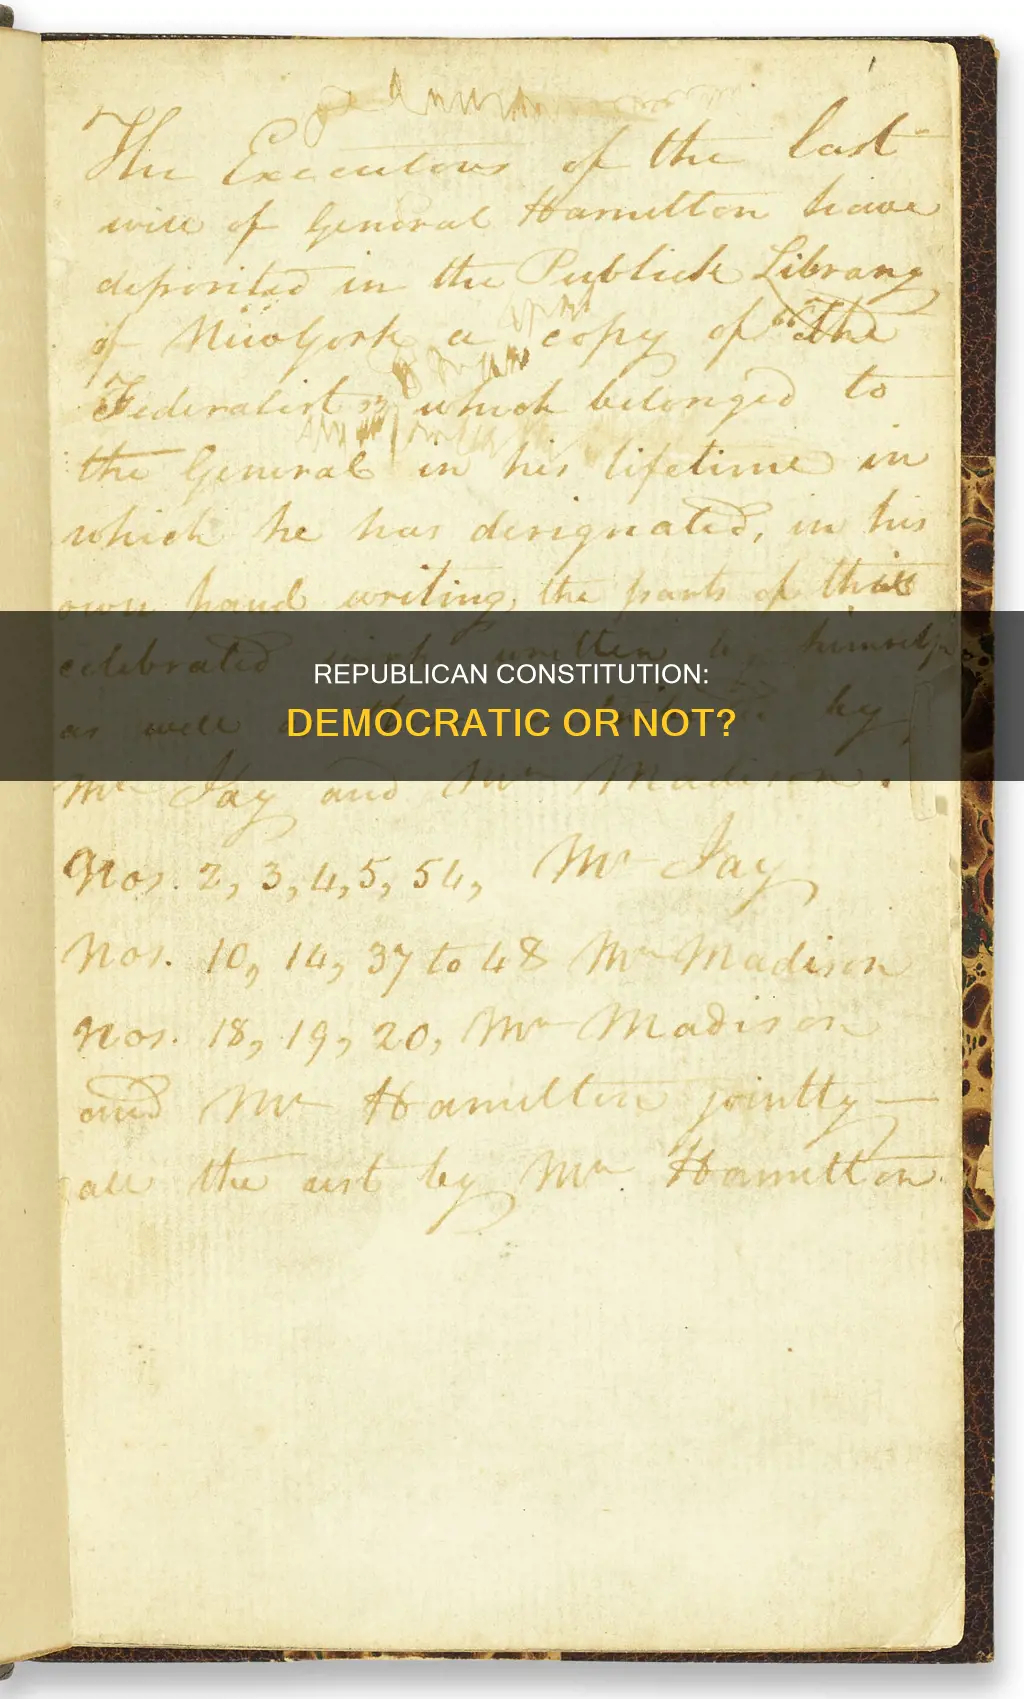 The Executors of the last
will of General Hamilton have
deposited in the Publick Library
of New York a copy of "The
Federalist" which belonged to
the General in his lifetime in
which he has designated, in his
own hand writing, the parts of that
celebrated work written by himself
REPUBLICAN CONSTITUTION:
DEMOCRATIC OR NOT?
as well as by
Mr Jay and Mr Madison.
Nos. 2, 3, 4, 5, 54, Mr Jay
Nos. 10, 14, 37 to 48 Mr Madison
Nos. 18, 19, 20, Mr Madison
and Mr Hamilton jointly—
all the rest by Mr Hamilton.